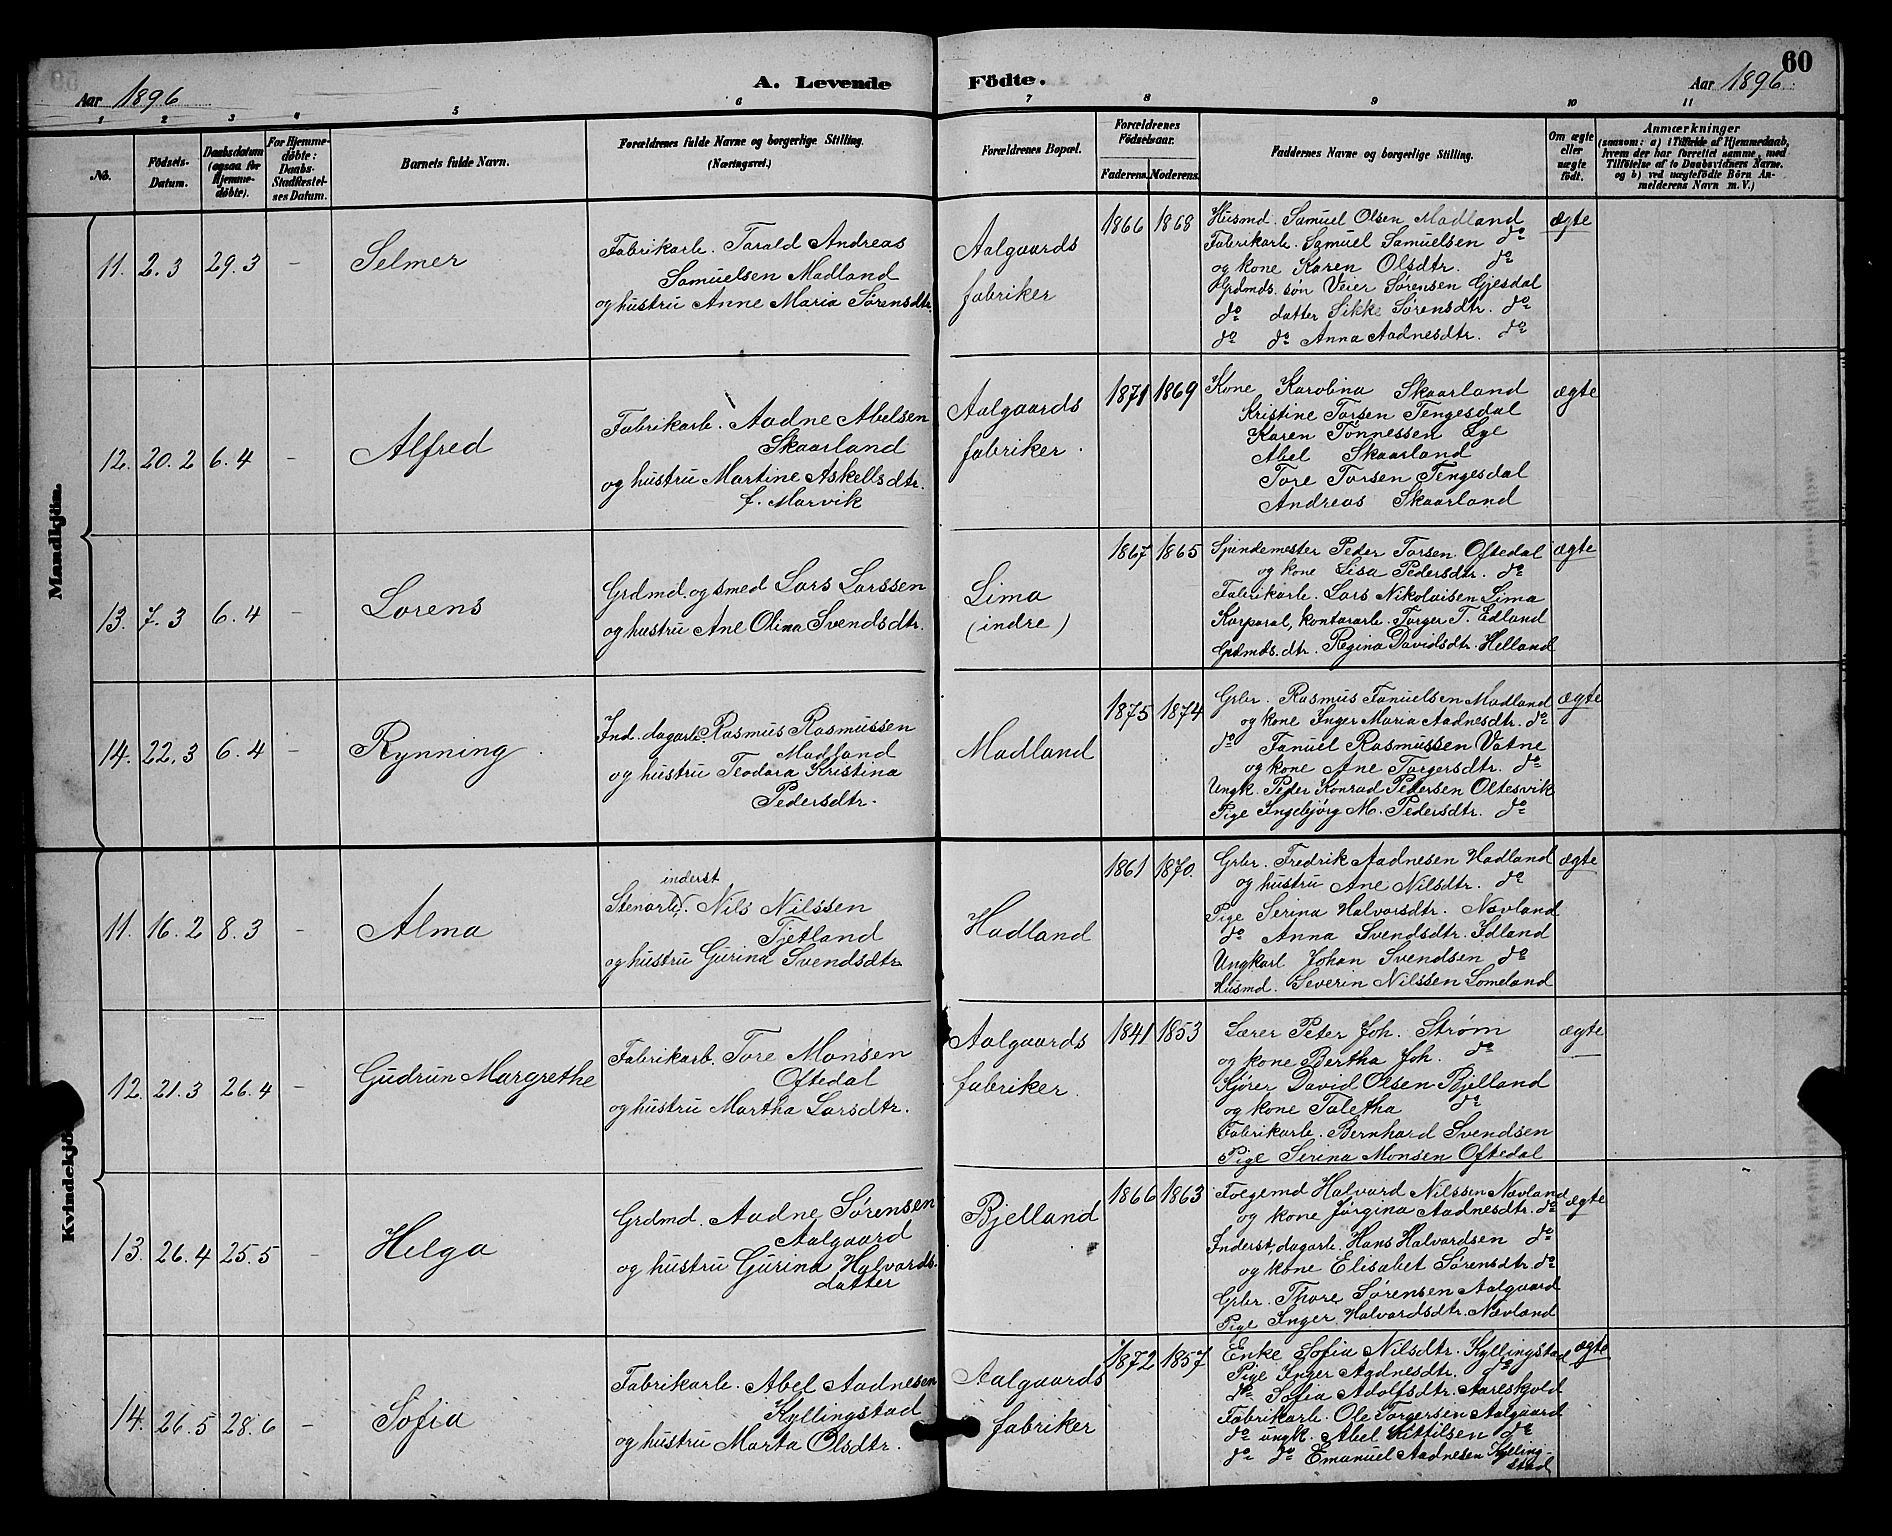 60
Aar 1896
A. Levende Födte.
Aar 1896
1 2 3 4 5 6 7 8 9 10 11
No.
Födsels-
Datum.
Daabsdatum
(ogsaa for
Hjemme-
døbte).
For Hjemme-
døbte:
Daabs-
Stadfæstel-
ses Datum.
Barnets fulde Navn.
Forældrenes fulde Navne og borgerlige Stilling.
(Næringsvei.)
Forældrenes Bopæl.
Forældrenes
Födselsaar.
Faderens. Moderens.
Faddernes Navne og borgerlige Stilling.
Om ægte
eller
uægte
født.
Anmærkninger
(saasom: a) i Tilfælde af Hjemmedaab,
hvem der har forrettet samme, med
Tilföielse af to Daabsvidners Navne.
og b) ved uægtefödte Börn An-
melderens Navn m. V.)
Mandkjön.
11. 2.3 29.3 –
Selmer
Fabrikarb. Tarald Andreas
Samuelsen Madland
og hustru Anne Maria Sørensdtr.
Aalgaards
fabriker
1866 1868
Husmd. Samuel Olsen Madland
Fabrikarb. Samuel Samuelsen do
og kone Karen Olsdtr. do
Grdmds. søn Veier Sørensen Gjesdal
do datter Sikke Sørensdtr. do
do do Anna Aadnesdtr. do
ægte
12. 20.2 6.4 –
Alfred
Fabrikarb. Aadne Abelsen
Skaarland
og hustru Martine Askellsdtr.
f. Marvik
Aalgaards
fabriker.
1871 1869
Kone Karolina Skaarland
Kristine Torsen Tengesdal
Karen Tønnessen Lye
Abel Skaarland
Tore Torsen Tengesdal
Andreas Skaarland
ægte
13. 7.3 6.4 –
Lorens
Grdmd. og smed Lars Larssen
og hustru Ane Olina Svendsdtr.
Lima
(indre)
1867 1865
Spindemester Peder Torsen Oftedal
og kone Lisa Pedersdtr. do
Fabrikarb. Lars Nikolaisen Lima
Korporal, kontorarb. Torger T. Edland
Grdmds. dtr. Regina Davidsdtr. Helland
ægte
14. 22.3 6.4 –
Rynning
Ind. dagarb. Rasmus Rasmussen
Madland
og hustru Teodora Kristina
Pedersdtr.
Madland
1875 1874
Grbr. Rasmus Tanuelsen Madland
og kone Inger Maria Aadnesdtr. do
do Fanuel Rasmussen Vatne
og kone Ane Torgersdtr. do
Ungk. Peder Konrad Pedersen Oltesvik
Pige Ingebjørg M. Pedersdtr. do
ægte
Kvindekjö
11. 16.2 8.3 –
Alma
inderst
Stenarb. Nils Nilssen
Tjetland
og hustru Gurina Svendsdtr.
Hadland
1861 1870.
Grbr. Fredrik Aadnesen Hadland
og hustru Ane Nilsdtr. do
Pige Serina Halvorsdtr. Nævland
do Anna Svendsdtr. Idland
Ungkarl Johan Svendsen do
Husmd. Severin Nilssen Lomeland
ægte
12. 21.3 26.4 –
Gudrun Margrethe
Fabrikarb. Tore Monsen
Oftedal
og hustru Martha Larsdtr.
Aalgaards
fabriker.
1841 1853
Lærer Peter Joh. Strøm
og kone Bertha Joh. do
Kjører David Olsen Bjelland
og kone Taletha do
Fabrikarb. Bernhard Svendsen
Pige Serina Monsen Oftedal
ægte
13. 26.4 25.5 –
Helga
Grdmd. Aadne Sørensen
Aalgaard
og hustru Gurina Halvards-
datter
Bjelland
1866 1863
Folgemd Halvard Nilssen Nævland
og kone Jørgina Aadnesdtr. do
Inderst, dagarb. Hans Halvardsen do
og kone Elisabet Sørensdtr. do
Grbr. Thore Sørensen Aalgaard
Pige Inger Halvardsdtr. Nævland
ægte
14. 26.5 28.6 –
Sofia
Fabrikarb. Abel Aadnesen
Kyllingstad
og hustru Marta Olsdtr.
Aalgaards
fabriker
1872 1857
Enke Sofia Nilsdtr. Kyllingstad
Pige Inger Aadnesdtr. do
do Sofia Adolfsdtr. Aareskjold
Fabrikarb. Ole Torgersen Aalgaard
do ungk. Abel Kittilsen do
do do Emanuel Aadnesen Kylling-
stad
ægte